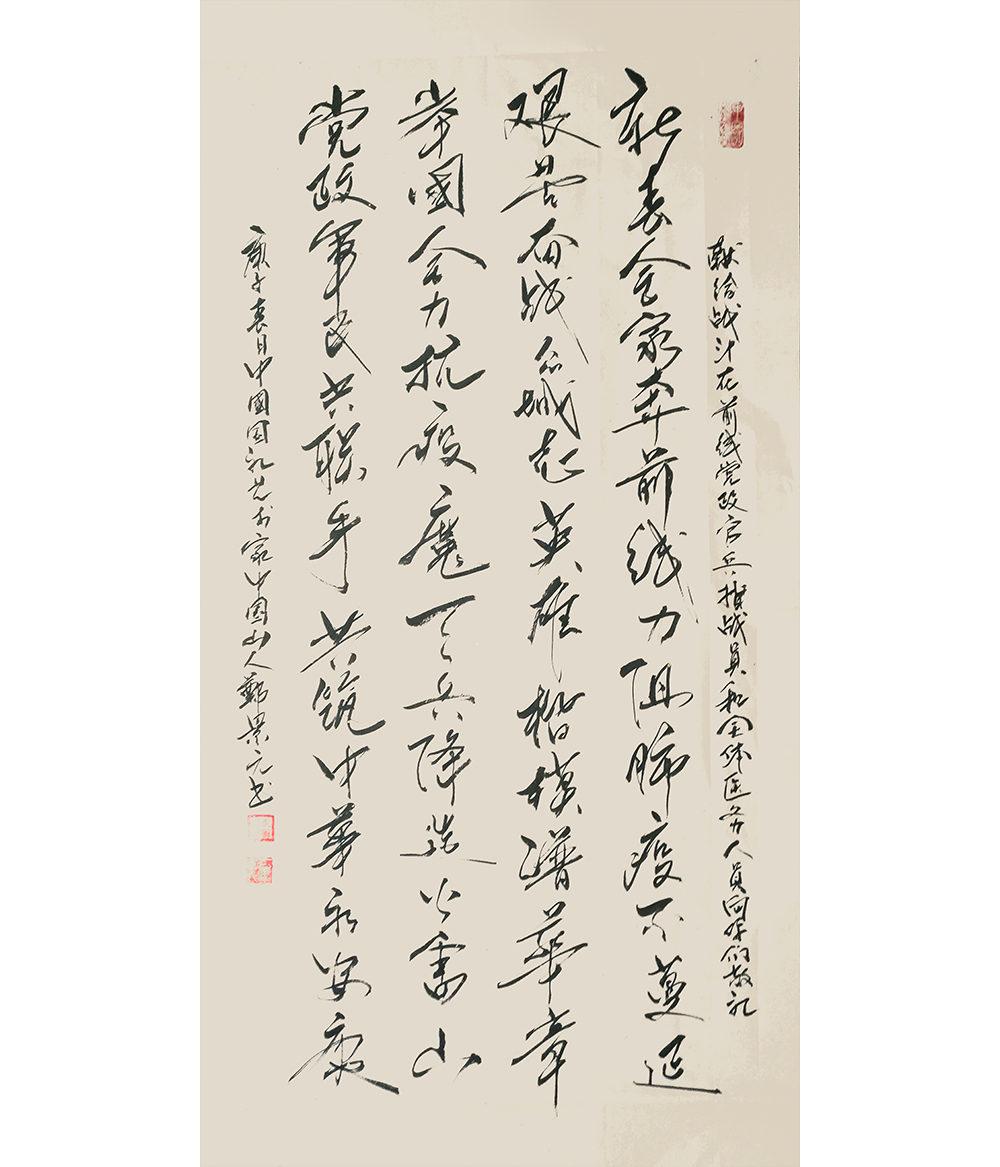 献给战斗在前线党政官兵指战员和全体医务人员向你们敬礼
新春舍家奔前线力阻肺疫不蔓延
艰苦奋战众城志英雄楷模谱华章
举國全力抗疫魔天兵降造火雷山
党政军民共联手共筑中华永安康
庚子春日中國国礼艺术家中国山人鄭景元书